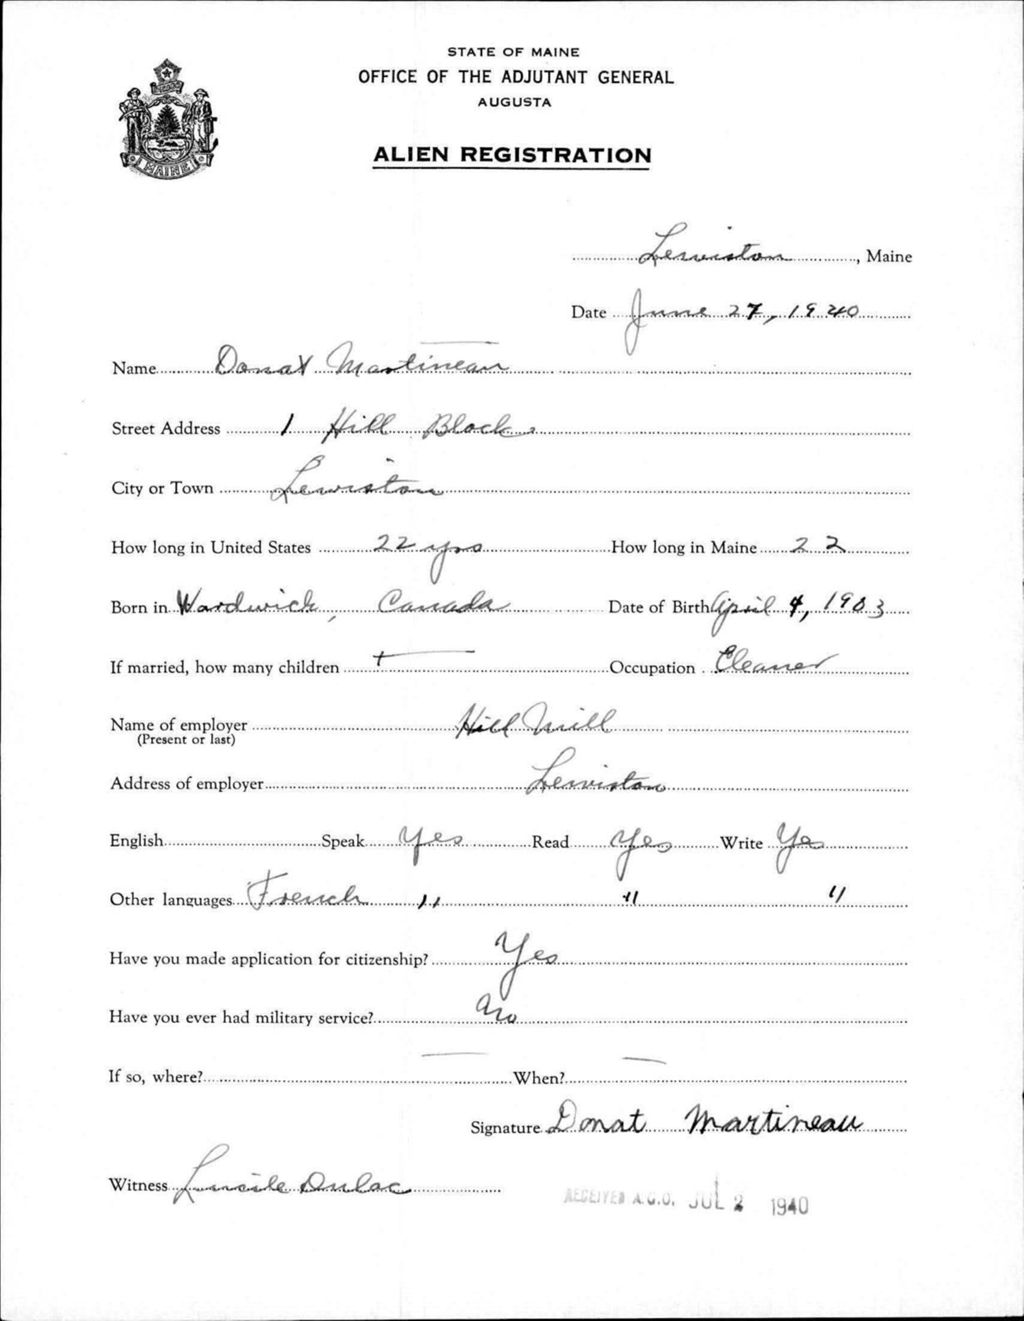 STATE OF MAINE
OFFICE OF THE ADJUTANT GENERAL
AUGUSTA
ALIEN REGISTRATION
MAINE
Lewiston, Maine
Date June 27, 1940
Name Donat Martineau
Street Address 1 Hill Block
City or Town Lewiston
How long in United States 22 yrs How long in Maine 22
Born in Wardwick, Canada Date of Birth April 4, 1903
If married, how many children Occupation Cleaner
Name of employer Hill Mill
(Present or last)
Address of employer Lewiston
English Speak Yes Read Yes Write Yes
Other languages French " " "
Have you made application for citizenship? Yes
Have you ever had military service? No
If so, where? — When? —
Signature Donat Martineau
Witness Lucile Dulac
RECEIVED A.G.O. JUL 2 1940